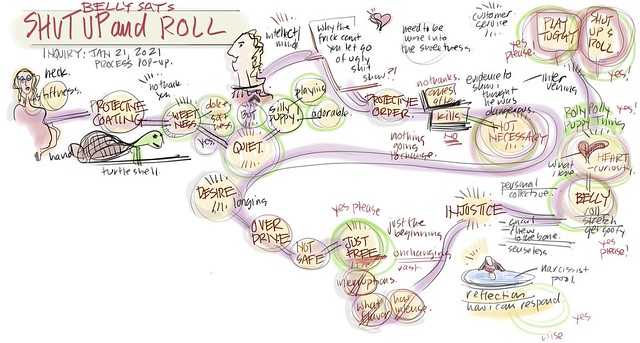 BELLY SAYS
SHUT UP and ROLL
INQUIRY: JAN 21, 2021
PROCESS POP-UP.
neck.
stiffness.
hand
PROTECTIVE
COATING
turtle shell.
no thank
you
SWEET
NESS
dolce
yes.
intellect/
mind
BUT
QUIET.
SILLY
PUPPY!
playing
adorable.
Why the
frick can't
you let go
of ugly
shit
show?!
need to be
more into
the sweetness.
PROTECTIVE
ORDER.
no thanks.
request
after
kills
NO
nothing
going
to change.
customer
service
evidence to
show i
thought
he was
dangerous.
NOT
NECESSARY
intervening
PLAY
TUGGY
SHUT
UP &
ROLL
yes
please!
yes!
ROLLY POLLY
PUPPY
Thing
what i love
HEART
curiosity
BELLY
roll
stretch
get goofy.
yes
please!
DESIRE
longing
OVER
DRIVE
NOT
SAFE
yes please
JUST
FREE
just the
beginning
unchanging
vast
interruptions.
what
flavor
how
intense.
INJUSTICE
personal
collective.
gnaw
chew
to the bone.
senseless.
narcissist
pool.
reflection
how i can respond
yes
wise
yes